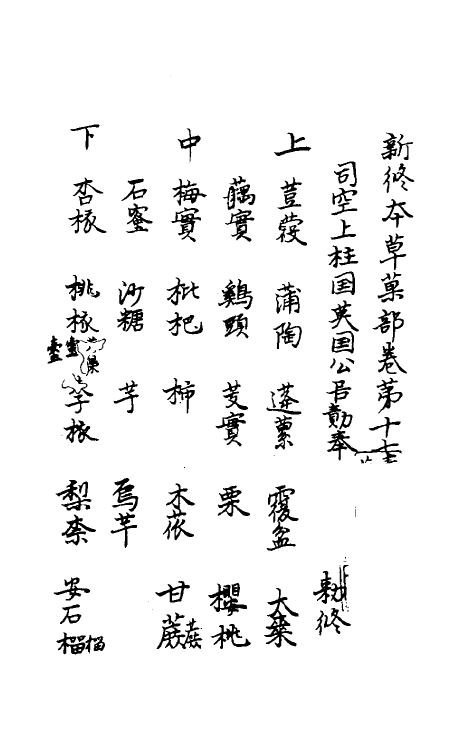 新修本草菓部卷第十七
司空上柱国英国公臣勣奉
勅修
上 荳蔲 蒲陶 蓬蔂 覆盆 大棗
藕實 鷄頭 芰實 栗 櫻桃
中 梅實 枇杷 柿 木苽 甘蔗
石蜜 沙糖 芋 烏芋
下 杏核 桃核 李核 梨 柰 安石榴